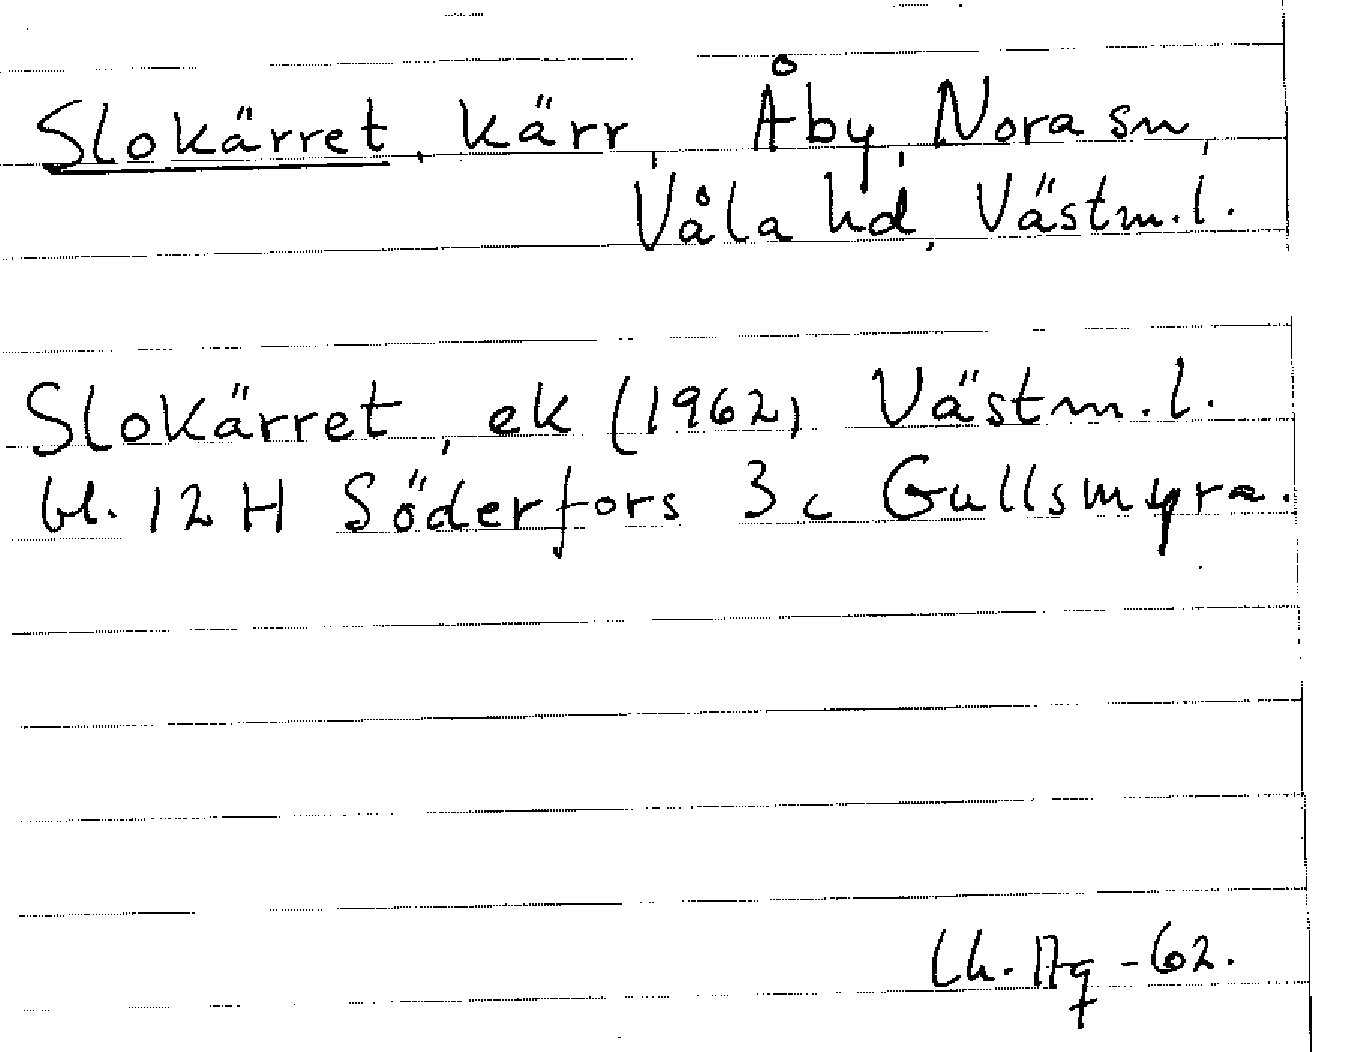 Slokärret, kärr, Åby, Nora sn,
Våla hd, Västm.l.
Slokärret, ek (1962) Västm.l.
bl. 12 H Söderfors 3 c Gullsmyra.
-62.